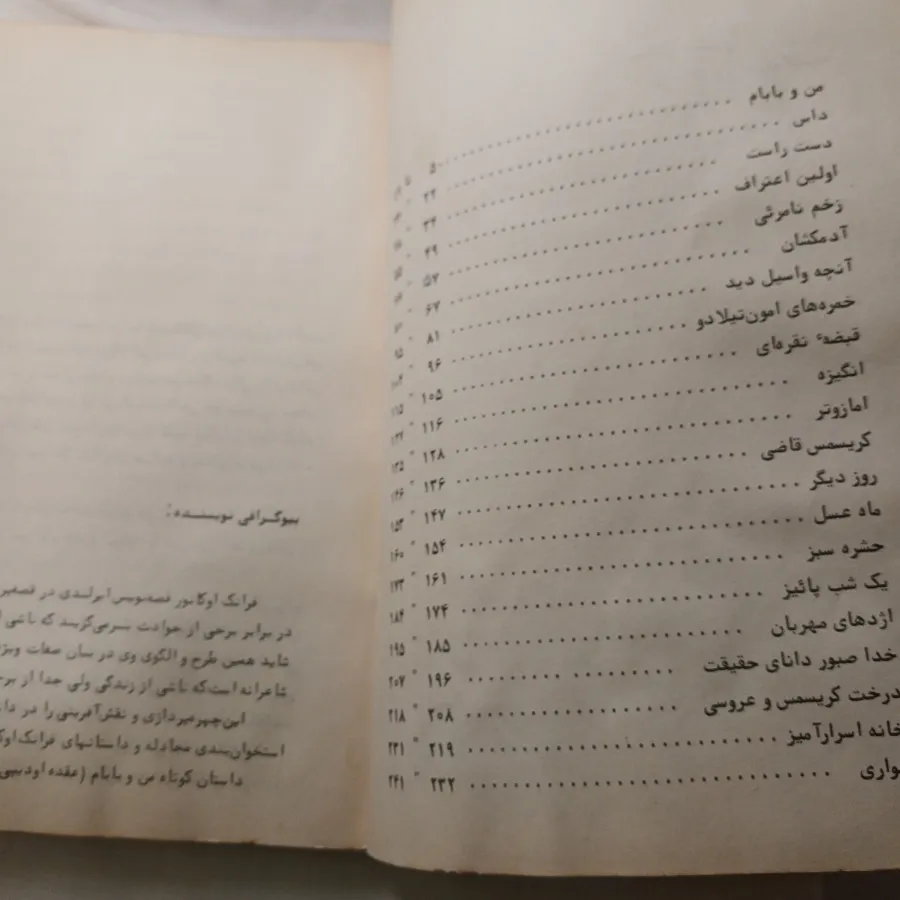 من و بابام ........ ۵ تا
داس ........ ۲۲ "
دست راست ........ ۳۴ "
اولین اعتراف ........ ۴۹ "
زخم نامرئی ........ ۵۷ "
آدمکشان ........ ۶۷ "
آنچه واسیل دید ........ ۸۱ "
خمره‌های امون‌تیلادو ........ ۹۶ "
قبضهٔ نقره‌ای ........ ۱۰۵ " ۱۱۵
انگیزه ........ ۱۱۶ "
امازوتر ........ ۱۲۸ " ۱۳۵
کریسمس قاضی ........ ۱۳۶ " ۱۴۶
روز دیگر ........ ۱۴۷ " ۱۵۳
ماه عسل ........ ۱۵۴ " ۱۶۰
حشره سبز ........ ۱۶۱ " ۱۷۳
یک شب پائیز ........ ۱۷۴ " ۱۸۴
اژدهای مهربان ........ ۱۸۵ " ۱۹۵
خدا صبور دانای حقیقت ........ ۱۹۶ " ۲۰۷
درخت کریسمس و عروسی ........ ۲۰۸ " ۲۱۸
خانه اسرارآمیز ........ ۲۱۹ " ۲۳۱
واری ........ ۲۳۲ " ۲۴۱
بیوگرافی نویسنده:
فرانک اوکانور قصه‌نویس ایرلندی در قصه‌
در برابر برخی از حوادث سرمی‌گرند که ناشی
شاید همین طرح و الگوی وی در بیان صفات ویژ
شاعرانه است که ناشی از زندگی ولی جدا از
این چهره‌پردازی و نقش‌آفرینی را در
استخوان‌بندی مجادله و داستانهای فرانک اوک
داستان کوتاه من و بابام (عقده اودیپی